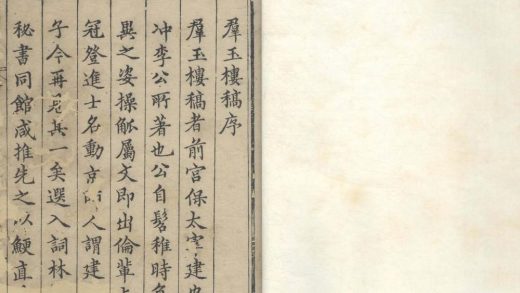 羣玉樓稿序
羣玉樓稿者前宮保太宰建
冲李公所著也公自髫稚時負
異之姿操觚屬文即出倫輩
冠登進士名動京師人謂建
子今再見其一矣選入詞林
秘書同館咸推先之以鯁直